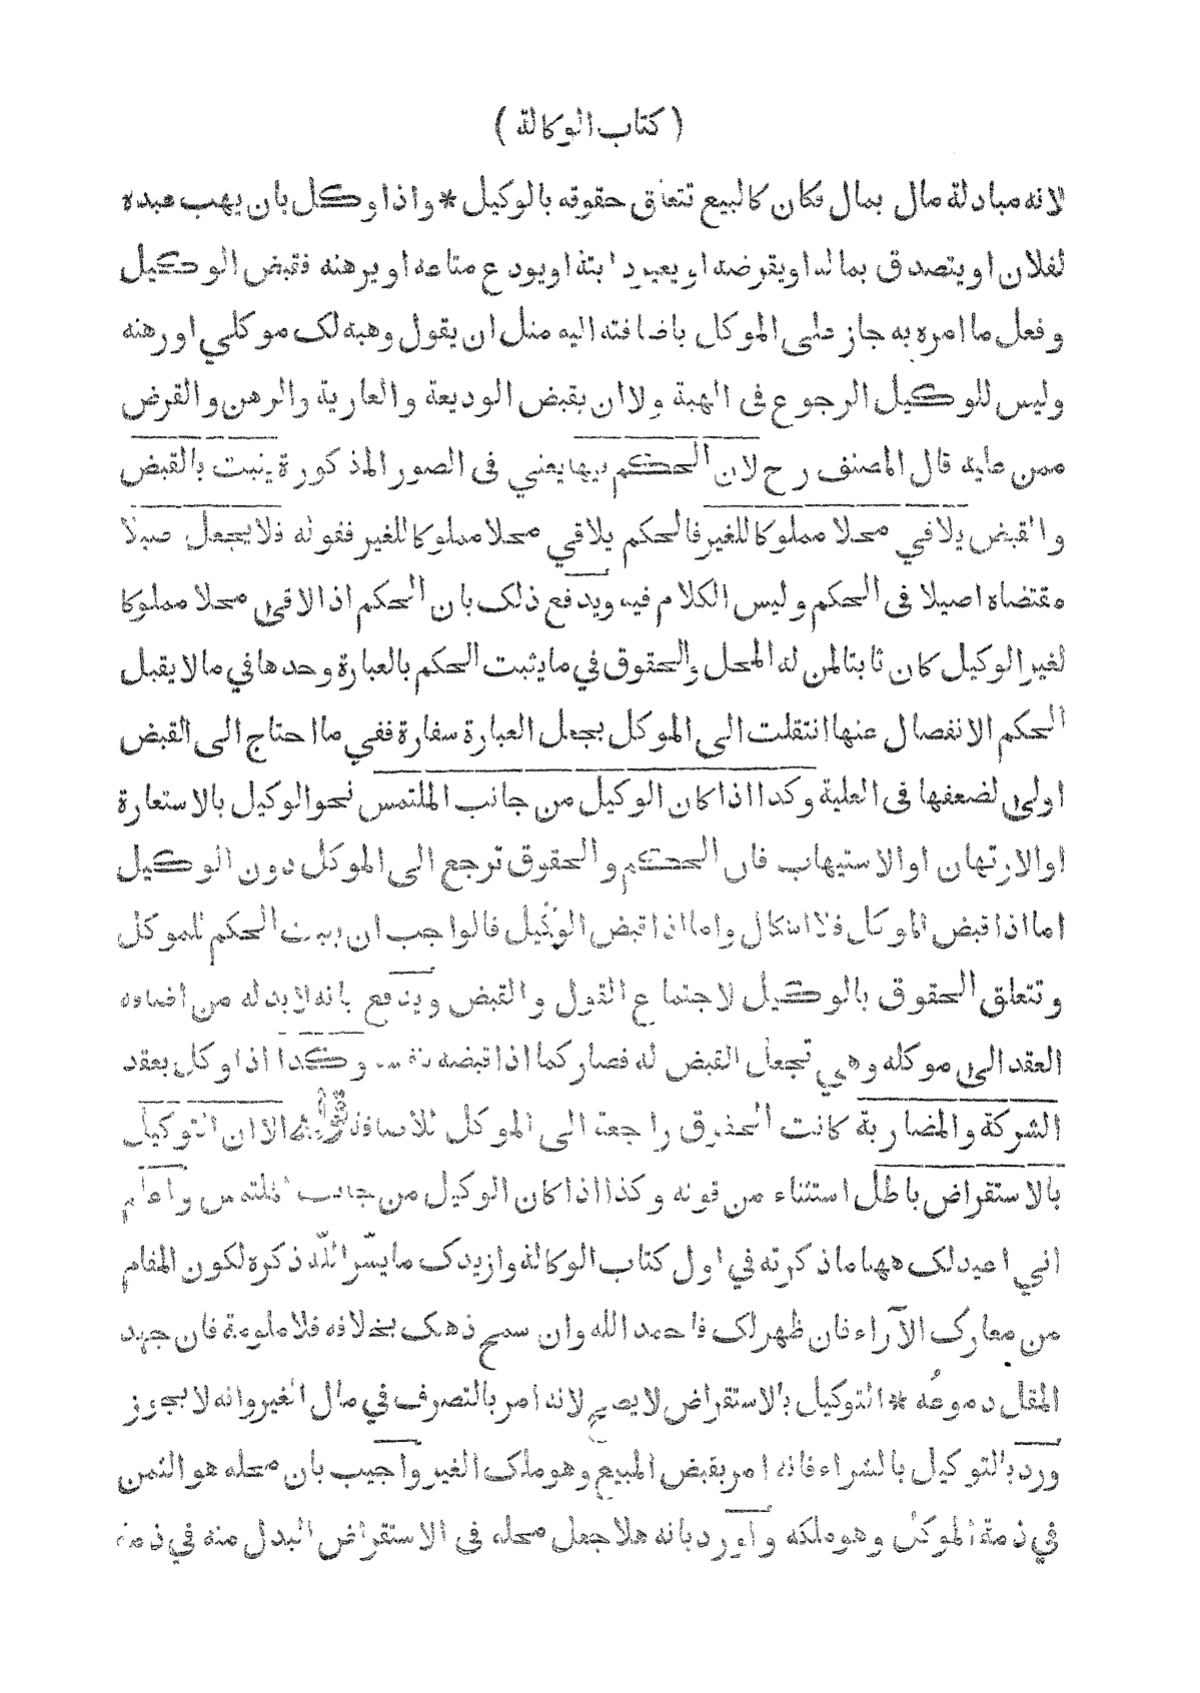 ( كتاب الوكالة )
لانه مبادلة مال بمال فكان كالبيع تتعلق حقوقه بالوكيل * واذا وكل بان يهب عبده
لفلان او يتصدق بماله او يقرضه او يعير دابته او يودع متاعه او يرهنه فقبض الوكيل
وفعل ما امره به جاز على الموكل باضافته اليه مثل ان يقول وهبه لك موكلي او رهنه
وليس للوكيل الرجوع فى الهبة ولا ان يقبض الوديعة والعارية والرهن والقرض
ممن عليه قال المصنف رح لان الحكم فيها يعني فى الصور المذكورة يثبت بالقبض
والقبض يلاقي محلا مملوكا للغير فالحكم يلاقي محلا مملوكا للغير فقوله فلا يجعل اصيلا
مقتضاه اصيلا فى الحكم وليس الكلام فيه ويدفع ذلك بان الحكم اذا لاقى محلا مملوكا
لغير الوكيل كان ثابتا لمن له المحل والحقوق في ما يثبت الحكم بالعبارة وحدها في ما لا يقبل
الحكم الانفصال عنها انتقلت الى الموكل بجعل العبارة سفارة ففي ما احتاج الى القبض
اولى لضعفها فى العلية وكذا اذا كان الوكيل من جانب الملتمس نحو الوكيل بالاستعارة
او الارتهان او الاستيهاب فان الحكم والحقوق ترجع الى الموكل دون الوكيل
اما اذا قبض الموكل فلا اشكال واما اذا قبض الوكيل فالواجب ان يثبت الحكم للموكل
وتتعلق الحقوق بالوكيل لاجتماع القول والقبض ويدفع بانه لا بد له من اضافة
العقد الى موكله وهي تجعل القبض له فصار كما اذا قبضه بنفسه وكذا اذا وكل بعقد
الشركة والمضاربة كانت الحقوق راجعة الى الموكل للاضافة الا ان التوكيل
بالاستقراض باطل استثناء من قوله وكذا اذا كان الوكيل من جانب الملتمس واعلم
اني اعيد لك ههنا ما ذكرته في اول كتاب الوكالة وازيدك ما يسّر اللّه ذكره لكون المقام
من معارك الآراء فان ظهر لك فاحمد الله وان سمح ذهنك بخلافه فلا ملومة فان جهد
المقل دموعُه * التوكيل بالاستقراض لا يصح لانه امر بالتصرف في مال الغير وانه لا يجوز
ورد بالتوكيل بالشراء فانه امر بقبض المبيع وهو ملك الغير واجيب بان محله هو الثمن
في ذمة الموكل وهو ملكه واورد بانه هلا جعل محله فى الاستقراض البدل منه في ذمة